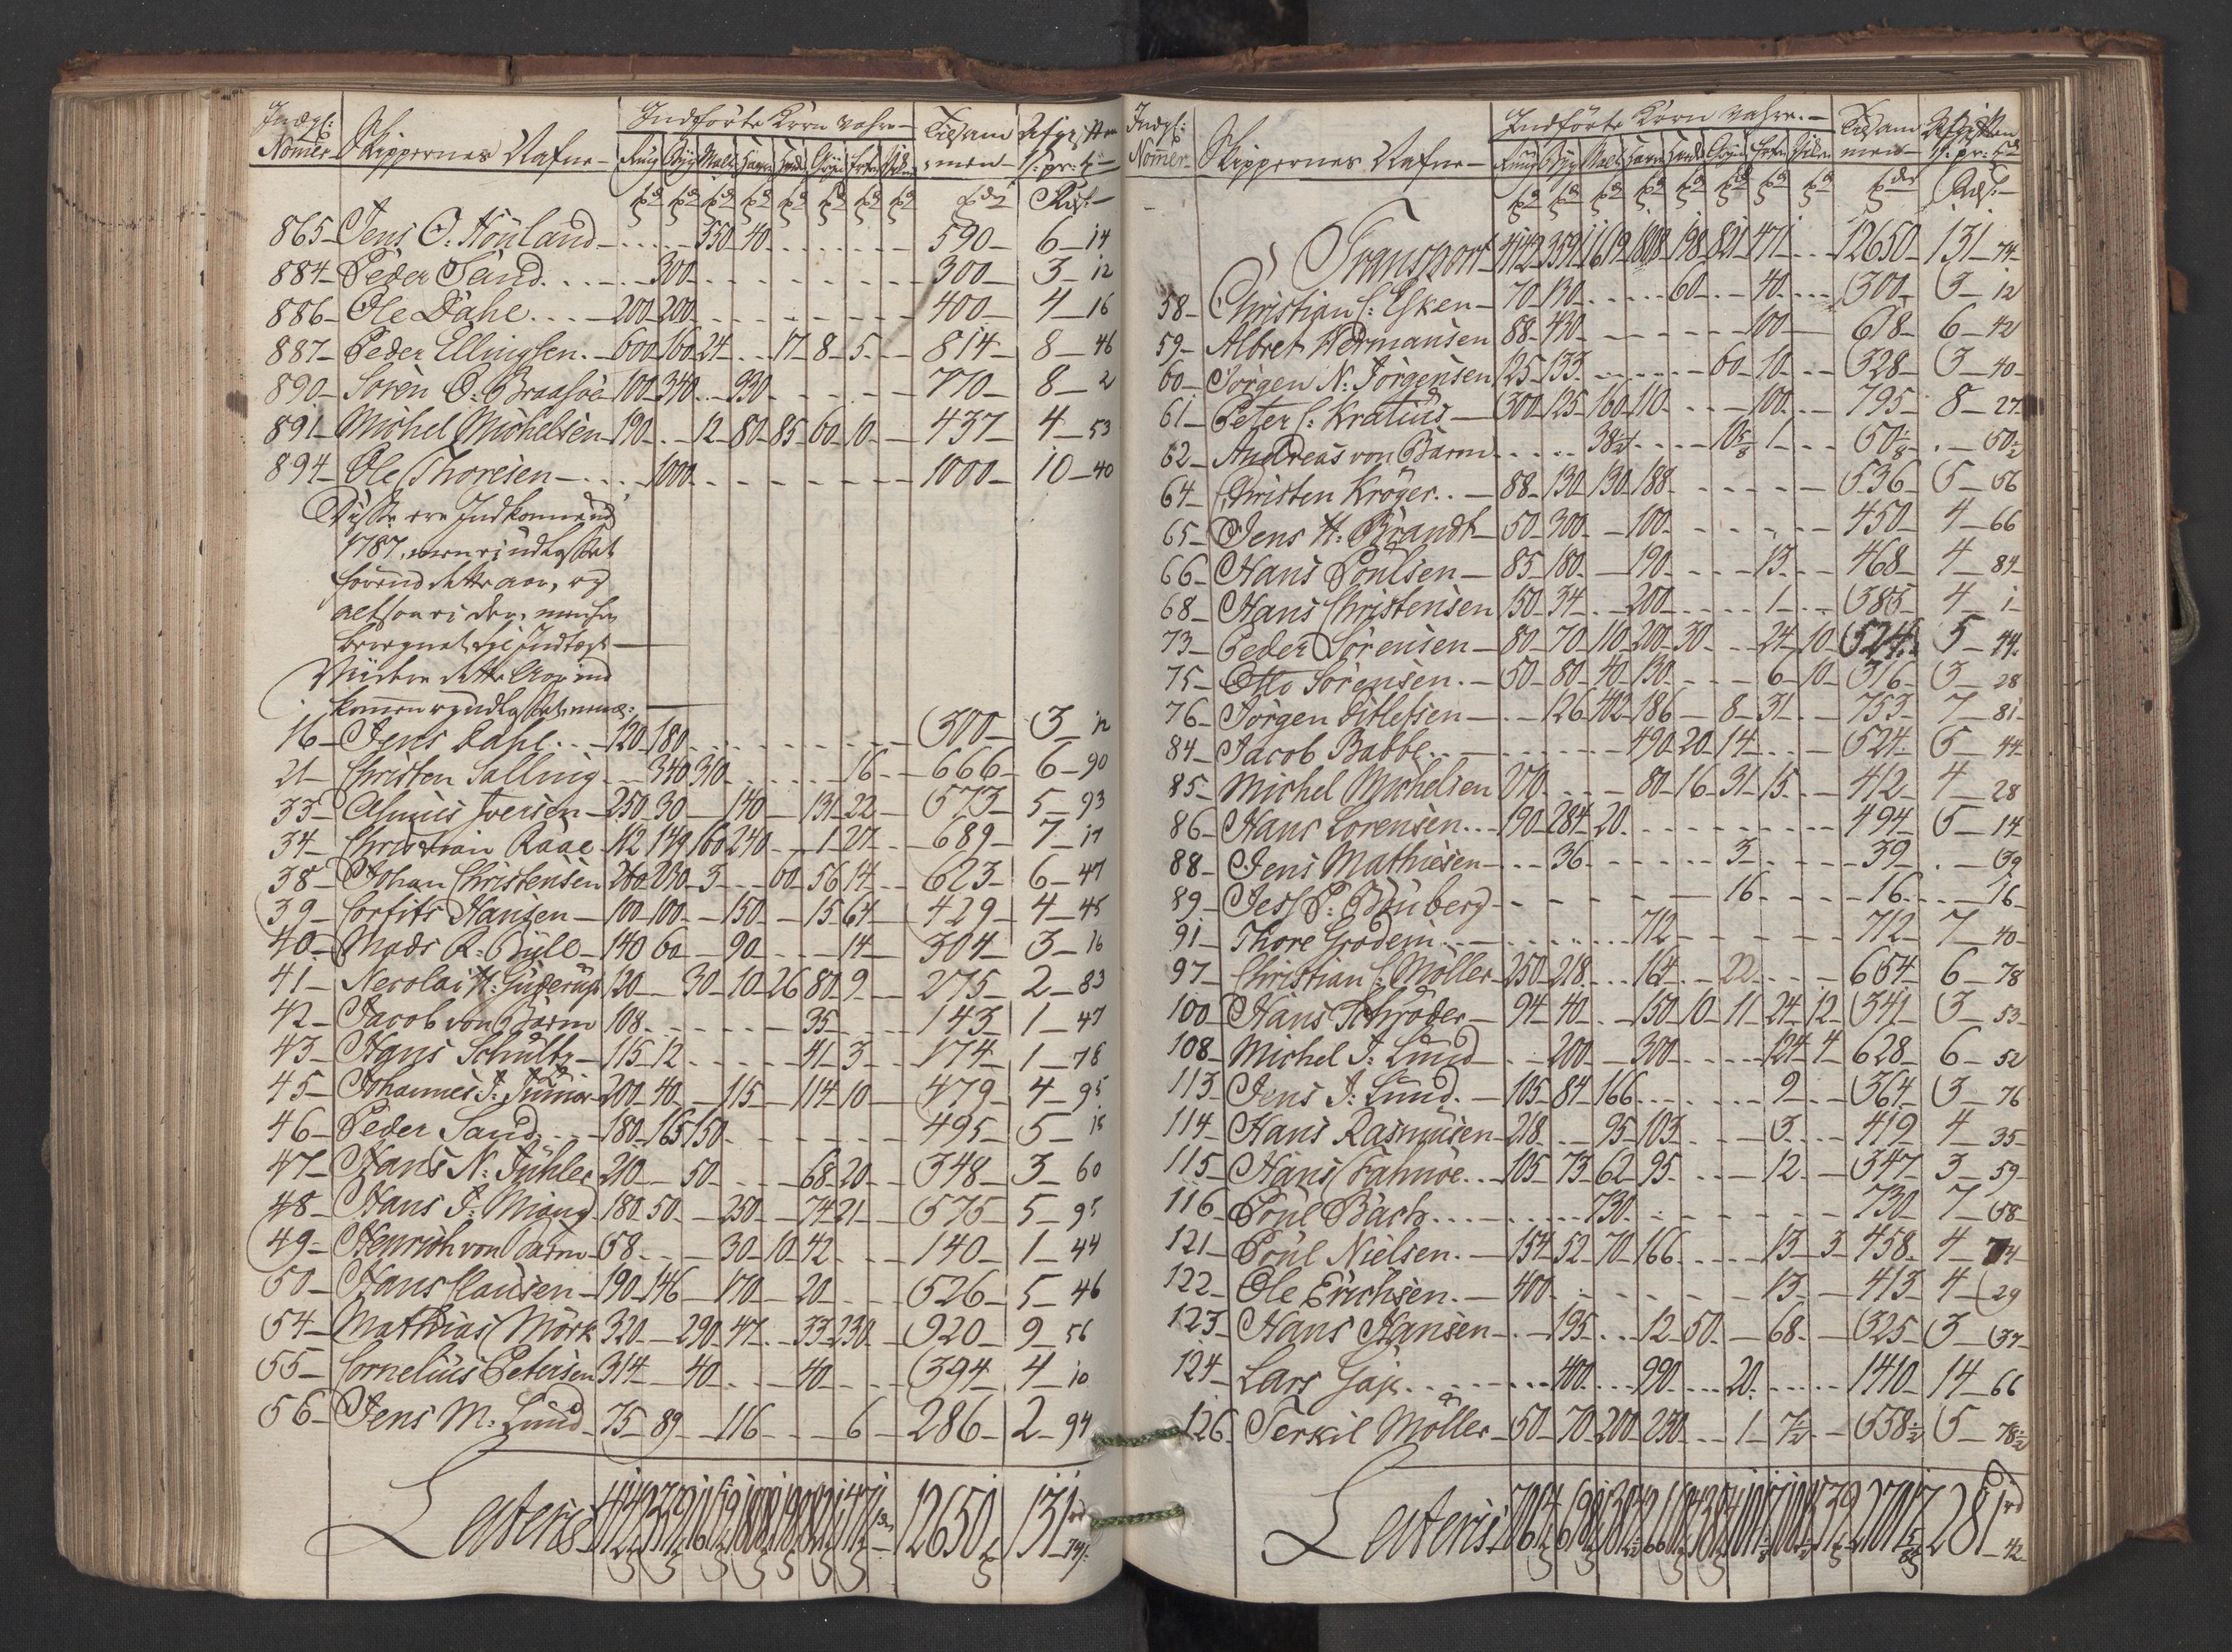 Indgl:
Nomer Skippernes Nafne Indförte Korn Vahre Tilsam
men Afgiften
Rug Byg Malt Havre Gryn
865 Jens O. Houland 550 40 590 6 14
884 Peder Sand 300 300 3 12
886 Ole Dahl 200 200 400 4 16
887 Peder Ellingsen 600 160 24 17 8 5 814 8 46
890 Sören O. Braasöe 100 340 330 770 8 2
891 Michel Michelsen 190 12 80 85 60 10 437 4 53
894 Ole Thoresen 1000 1000 10 40
Disse ere Indkommende
1787, men ei udlosset
förend dette aar, og
altsaa ei den
beregnet til Indtægt
Viidere dette Aar ind
kommen og udlosset, nemlig:
16 Jens Dahl 120 180 300 3 12
21 Christen Salling 340 310 16 666 6 90
33 Asmus Iversen 250 30 140 131 22 573 5 93
34 Christian Raae 112 149 160 240 1 27 689 7 17
38 Johan Christensen 260 230 3 60 56 14 623 6 47
39 Corfits Hansen 100 100 150 15 64 429 4 45
40 Mads R. Bull 140 60 90 14 304 3 16
41 Necolai H: Guderup 120 30 10 26 80 9 275 2 83
42 Jacob von Barm 108 35 143 1 47
43 Hans Schultz 115 12 41 3 174 1 78
45 Johannes J: Junior 200 40 115 114 10 479 4 95
46 Peder Sand 180 165 150 495 5 15
47 Hans N: Jühler 210 50 68 20 348 3 60
48 Hans J: Miang 180 50 250 74 21 575 5 95
49 Henrich von Barm 58 30 10 42 140 1 44
50 Hans Clausen 190 146 170 20 526 5 46
54 Mathias Mörk 320 290 47 33 230 920 9 56
55 Cornelius Petersen 314 40 40 394 4 10
56 Jens M: Lund 75 89 116 6 286 2 94
Lateris 12650 131
Indgl:
Nomer Skippernes Nafne Indförte Korn Vahre Tilsam
men Afgiften
Transport 4142 3591 1619 1808 198 821 471 12650 131 74
58 Christian C: Esken 70 130 60 40 300 3 12
59 Albret Hermansen 88 430 100 618 6 42
60 Jörgen N: Jörgensen 125 133 60 10 328 3 40
61 Peter C: Kratius 300 125 160 110 100 795 8 27
62 Andreas von Barm 38½ 10⅝ 1 50⅛ 50½
64 Christen Kröger 88 130 130 188 536 5 56
65 Jens H: Brandt 50 300 100 450 4 66
66 Hans Poulsen 85 180 190 13 468 4 84
68 Hans Christensen 150 34 200 1 385 4 1
73 Peder Sörensen 80 70 110 200 30 24 10 524 5 44
75 Otto Sörensen 50 80 40 130 6 10 316 3 28
76 Jörgen Ditlefsen 126 402 186 8 31 753 7 81
84 Jacob Babbe 490 20 14 524 5 44
85 Michel Michelsen 270 80 16 31 15 412 4 28
86 Hans Lorensen 190 284 20 494 5 14
88 Jens Mathiesen 36 3 39 39
89 Jess P: Buberg 16 16 16
91 Thore Grodem 712 712 7 40
97 Christian C: Möller 250 218 164 22 654 6 78
100 Hans Schröder 94 40 150 10 11 24 12 341 3 53
108 Michel J: Lund 200 300 124 4 628 6 52
113 Jens J: Lund 105 84 166 9 364 3 76
114 Hans Rasmusen 218 95 103 3 419 4 35
115 Hans Fahnöe 105 73 62 95 12 347 3 59
116 Poul Bach 730 730 7 58
121 Poul Nielsen 154 52 70 166 13 3 458 4 74
122 Ole Erichsen 400 13 413 4 29
123 Hans Hansen 195 12 50 68 325 3 37
124 Lars Gaje 400 990 20 1410 14 66
126 Terkil Möller 50 70 200 230 1 7½ 558½ 5 78½
Lateris 281 42